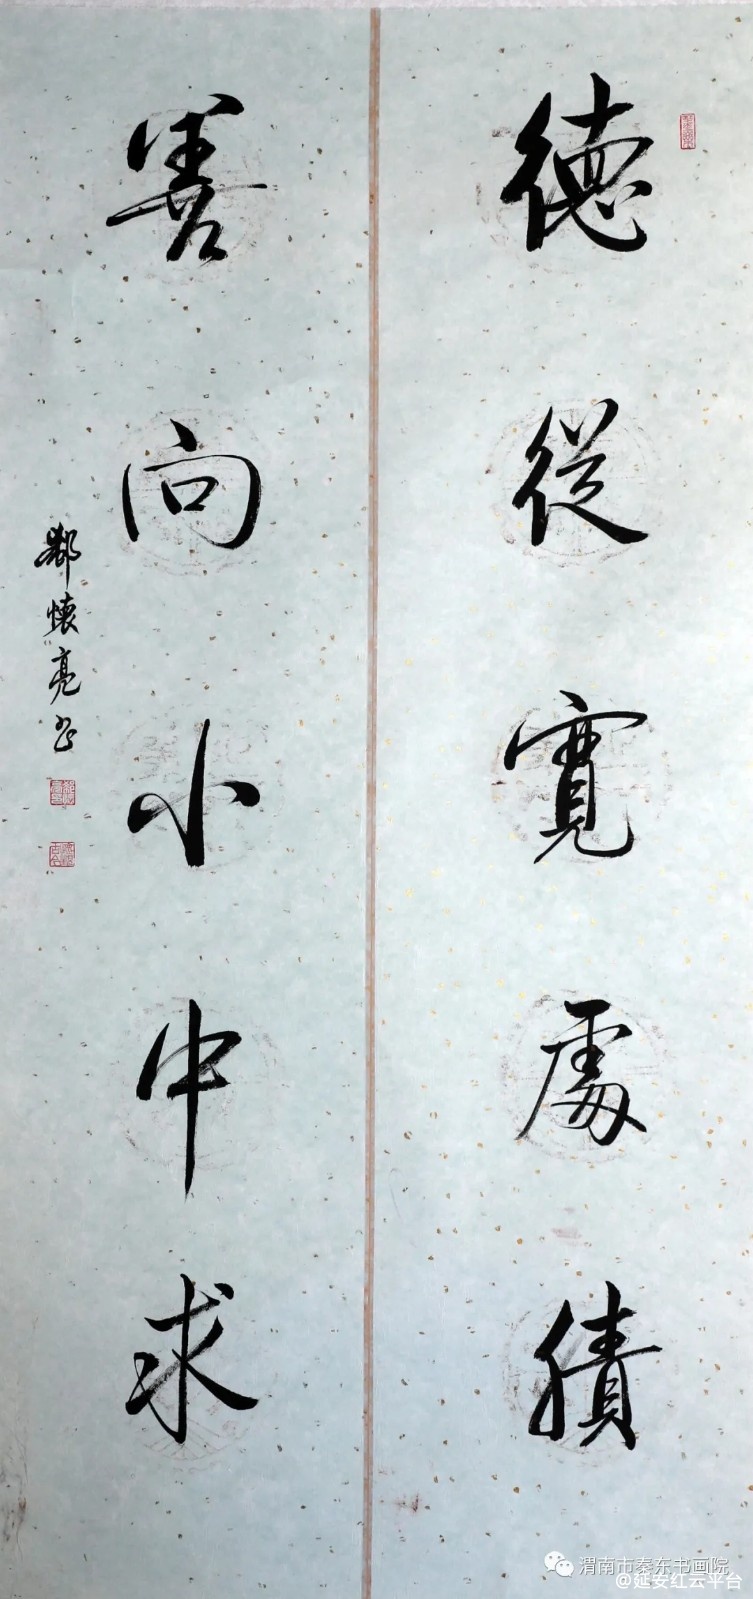 德從寬處積
善向小中求
鄒懷亮書
渭南市秦东书画院
@延安红云平台